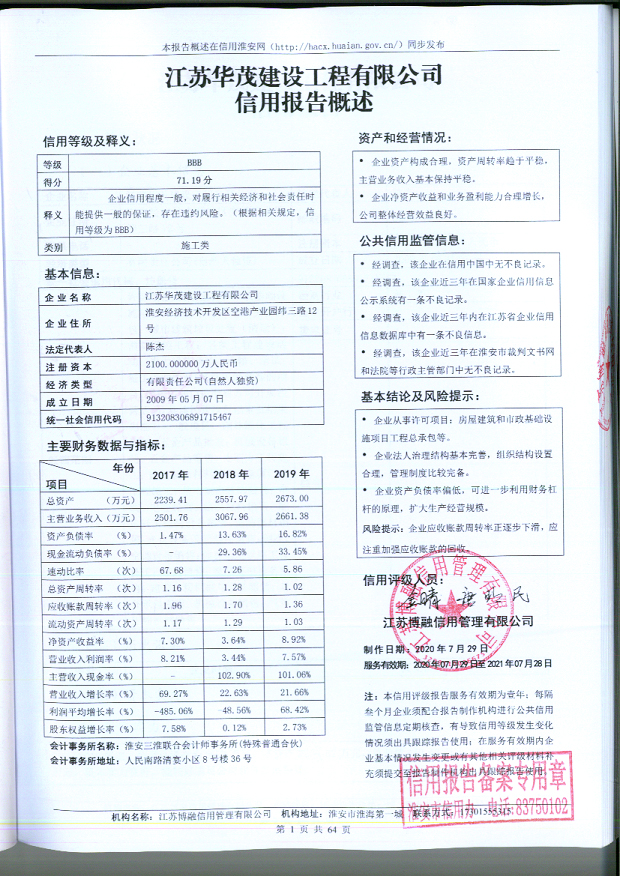 本报告概述在信用淮安网（http://hacx.huaian.gov.cn/）同步发布
江苏华茂建设工程有限公司
信用报告概述
信用等级及释义：
等级 BBB
得分 71.19 分
释义 企业信用程度一般，对履行相关经济和社会责任时
能提供一般的保证，存在违约风险。（根据相关规定，信
用等级为 BBB）
类别 施工类
基本信息：
企业名称 江苏华茂建设工程有限公司
企业住所 淮安经济技术开发区空港产业园纬三路 12
号
法定代表人 陈杰
注册资本 2100.000000 万人民币
经济类型 有限责任公司(自然人独资)
成立日期 2009 年 05 月 07 日
统一社会信用代码 913208306891715467
主要财务数据与指标：
年份 项目 2017 年 2018 年 2019 年
总资产 （万元） 2239.41 2557.97 2673.00
主营业务收入（万元） 2501.76 3067.96 2661.38
资产负债率 （%） 1.47% 13.63% 16.82%
现金流动负债率（%） - 29.36% 33.45%
速动比率 （次） 67.68 7.26 5.86
总资产周转率 （次） 1.16 1.28 1.02
应收账款周转率（次） 1.96 1.70 1.36
流动资产周转率（次） 1.17 1.29 1.03
净资产收益率 （%） 7.30% 3.64% 8.92%
营业收入利润率（%） 8.21% 3.44% 7.57%
主营收入现金率（%） - 102.90% 101.06%
营业收入增长率（%） 69.27% 22.63% 21.66%
利润平均增长率（%） -485.06% -48.56% 68.42%
股东权益增长率（%） 7.58% 0.12% 2.73%
会计事务所名称：淮安三淮联合会计师事务所(特殊普通合伙)
会计事务所地址：人民南路清宴小区 8 号楼 36 号
资产和经营情况：
• 企业资产构成合理，资产周转率趋于平稳，
主营业务收入基本保持平稳。
• 企业净资产收益和业务盈利能力合理增长，
公司整体经营效益良好。
公共信用监管信息：
• 经调查，该企业在信用中国中无不良记录。
• 经调查，该企业近三年在国家企业信用信息
公示系统有一条不良记录。
• 经调查，该企业近三年内在江苏省企业信用
信息数据库中有一条不良信息。
• 经调查，该企业近三年在淮安市裁判文书网
和法院等行政主管部门中无不良记录。
基本结论及风险提示：
• 企业从事许可项目：房屋建筑和市政基础设
施项目工程总承包等。
• 企业法人治理结构基本完善，组织结构设置
合理，管理制度比较完备。
• 企业资产负债率偏低，可进一步利用财务杠
杆的原理，扩大生产经营规模。
风险提示：企业应收账款周转率正逐步下滑，应
注重加强应收账款的回收。
信用评级人员：
江苏博融信用管理有限公司
江苏博融信用管理有限公司
制作日期：2020 年 7 月 29 日
服务有效期：2020 年 07 月 29 日至 2021 年 07 月 28 日
注：本信用评级报告服务有效期为壹年；每隔
叁个月企业须配合报告制作机构进行公共信用
监管信息定期核查，有导致信用等级发生变化
情况须出具跟踪报告使用；在服务有效期内企
业基本情况发生变更或有其他相关评级材料补
充须提交至报告制作机构出具跟踪报告使用。
信用报告备案专用章
淮安市信用办 电话:83750102
机构名称：江苏博融信用管理有限公司 机构地址：淮安市淮海第一城 联系方式：
第 1 页 共 64 页